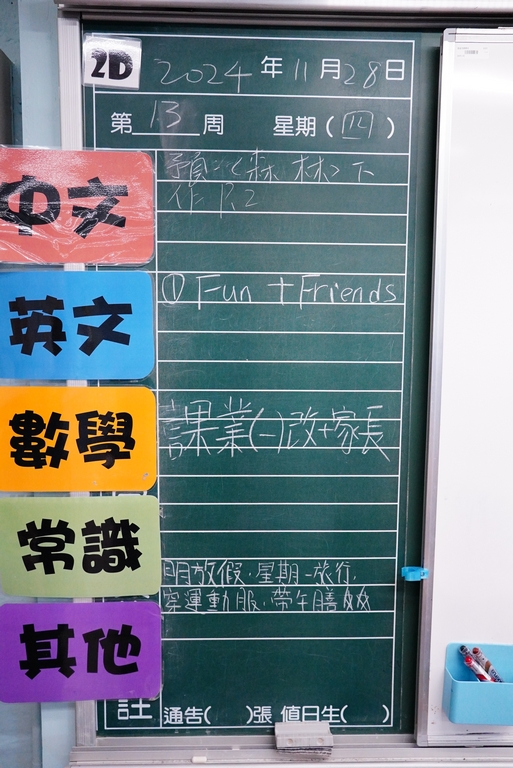 2D 2024年11月28日
第13周 星期(四)
中文
預:<森林>下
作 P.2
英文
① Fun + Friends
數學
課業(一)改+家長
常識
明放假.星期一旅行.
穿運動服.帶午膳
其他
註 通告( )張 值日生( )